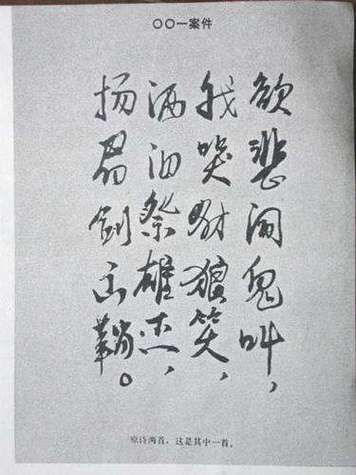 〇〇一案件
欲悲闹鬼叫，
我哭豺狼笑，
洒泪祭雄杰，
扬眉剑出鞘。
原诗两首，这是其中一首。